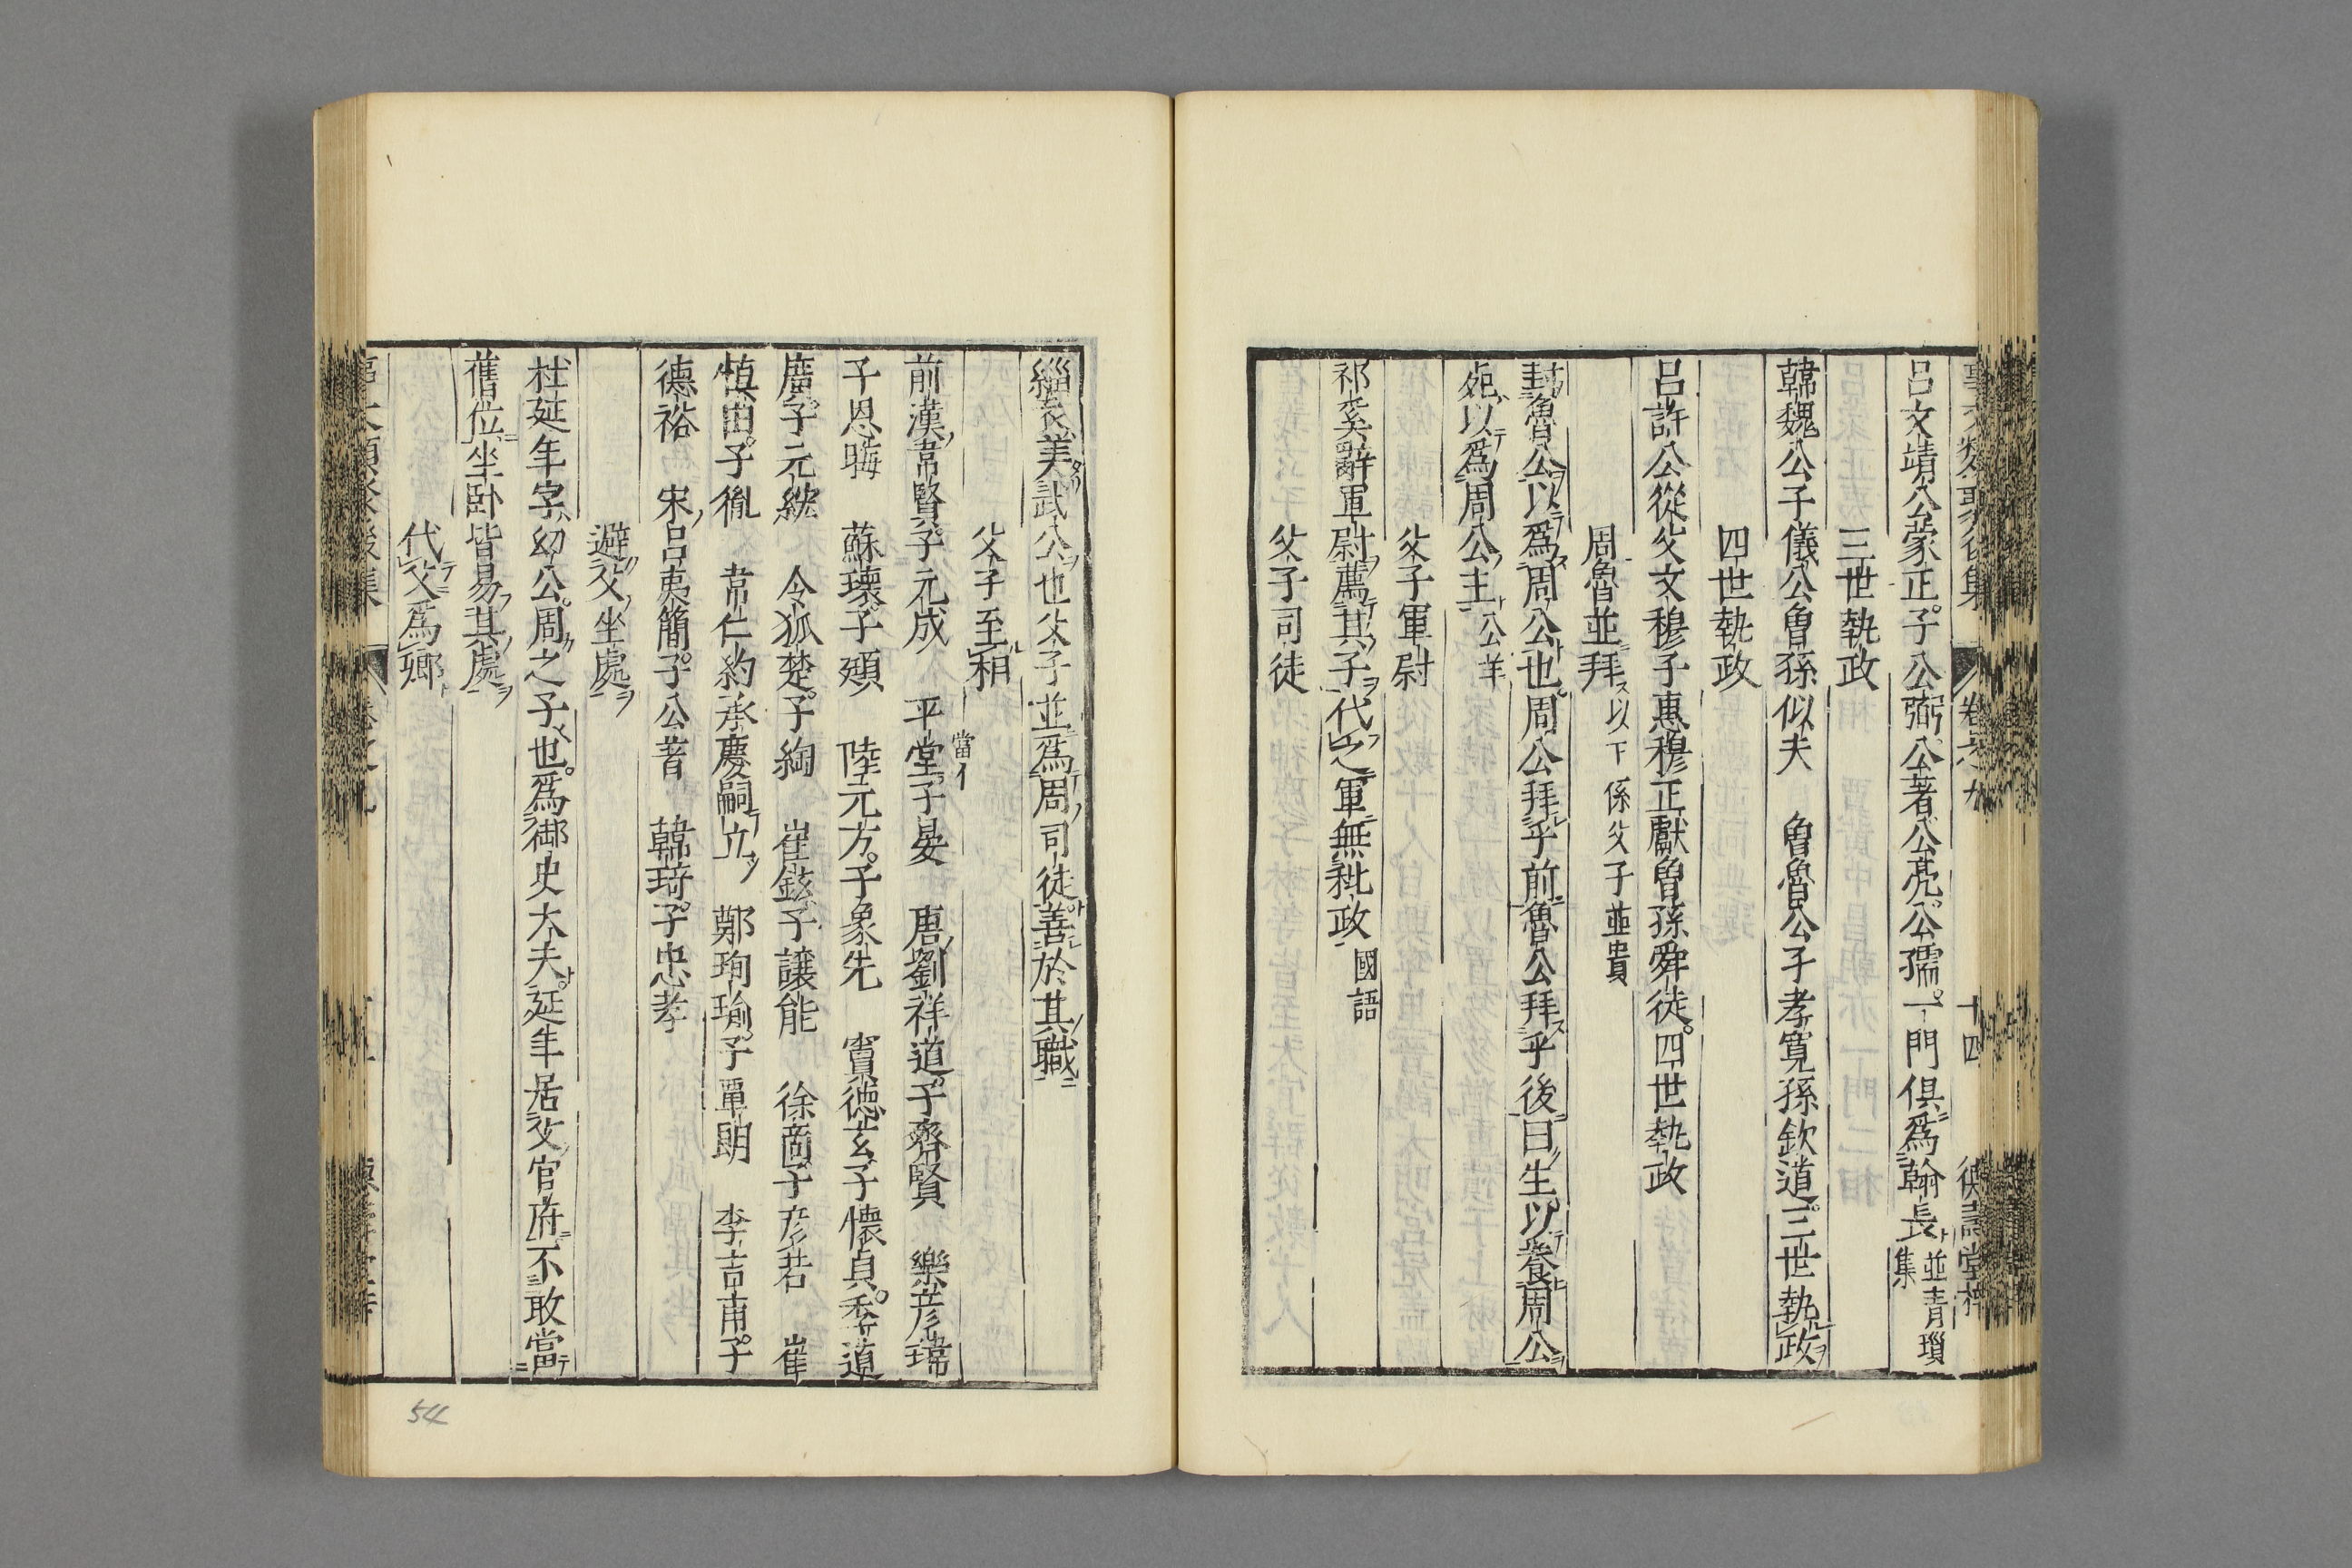 呂文靖公蒙正子公弼公著公亮公孺一門俱爲翰長並青瑣集
三世執政
韓魏公子儀公曾孫似夫　魯魯公子孝寬孫欽道三世執政
四世執政
呂許公從父文穆子惠穆正獻曾孫舜徒四世執政
周魯並拜以下係父子並貴
封魯公以爲周公也周公拜乎前魯公拜乎後曰生以養周公
死以爲周公主公羊
父子軍尉
祁奚辭軍尉薦其子代之軍無秕政國語
父子司徒
緇衣美武公也父子並爲周司徒善於其職
父子至相
前漢韋賢子元成　平堂子晏　唐劉祥道子齊賢　樂彦瑋
當イ
子思晦　蘇瓌子頲　陸元方子象先　竇德玄子懷貞　季道
廣子元紘　令狐楚子綯　崔鉉子讓能　徐商子彦若　崔
慎由子胤　韋仁約承慶嗣立　鄭珣瑜子覃朗　李吉甫子
德裕　宋呂夷簡子公著　韓琦子忠孝
避父坐處
杜延年字幼公周之子也爲御史大夫延年居父官府不敢當
舊位坐卧皆易其處
代父爲卿
54